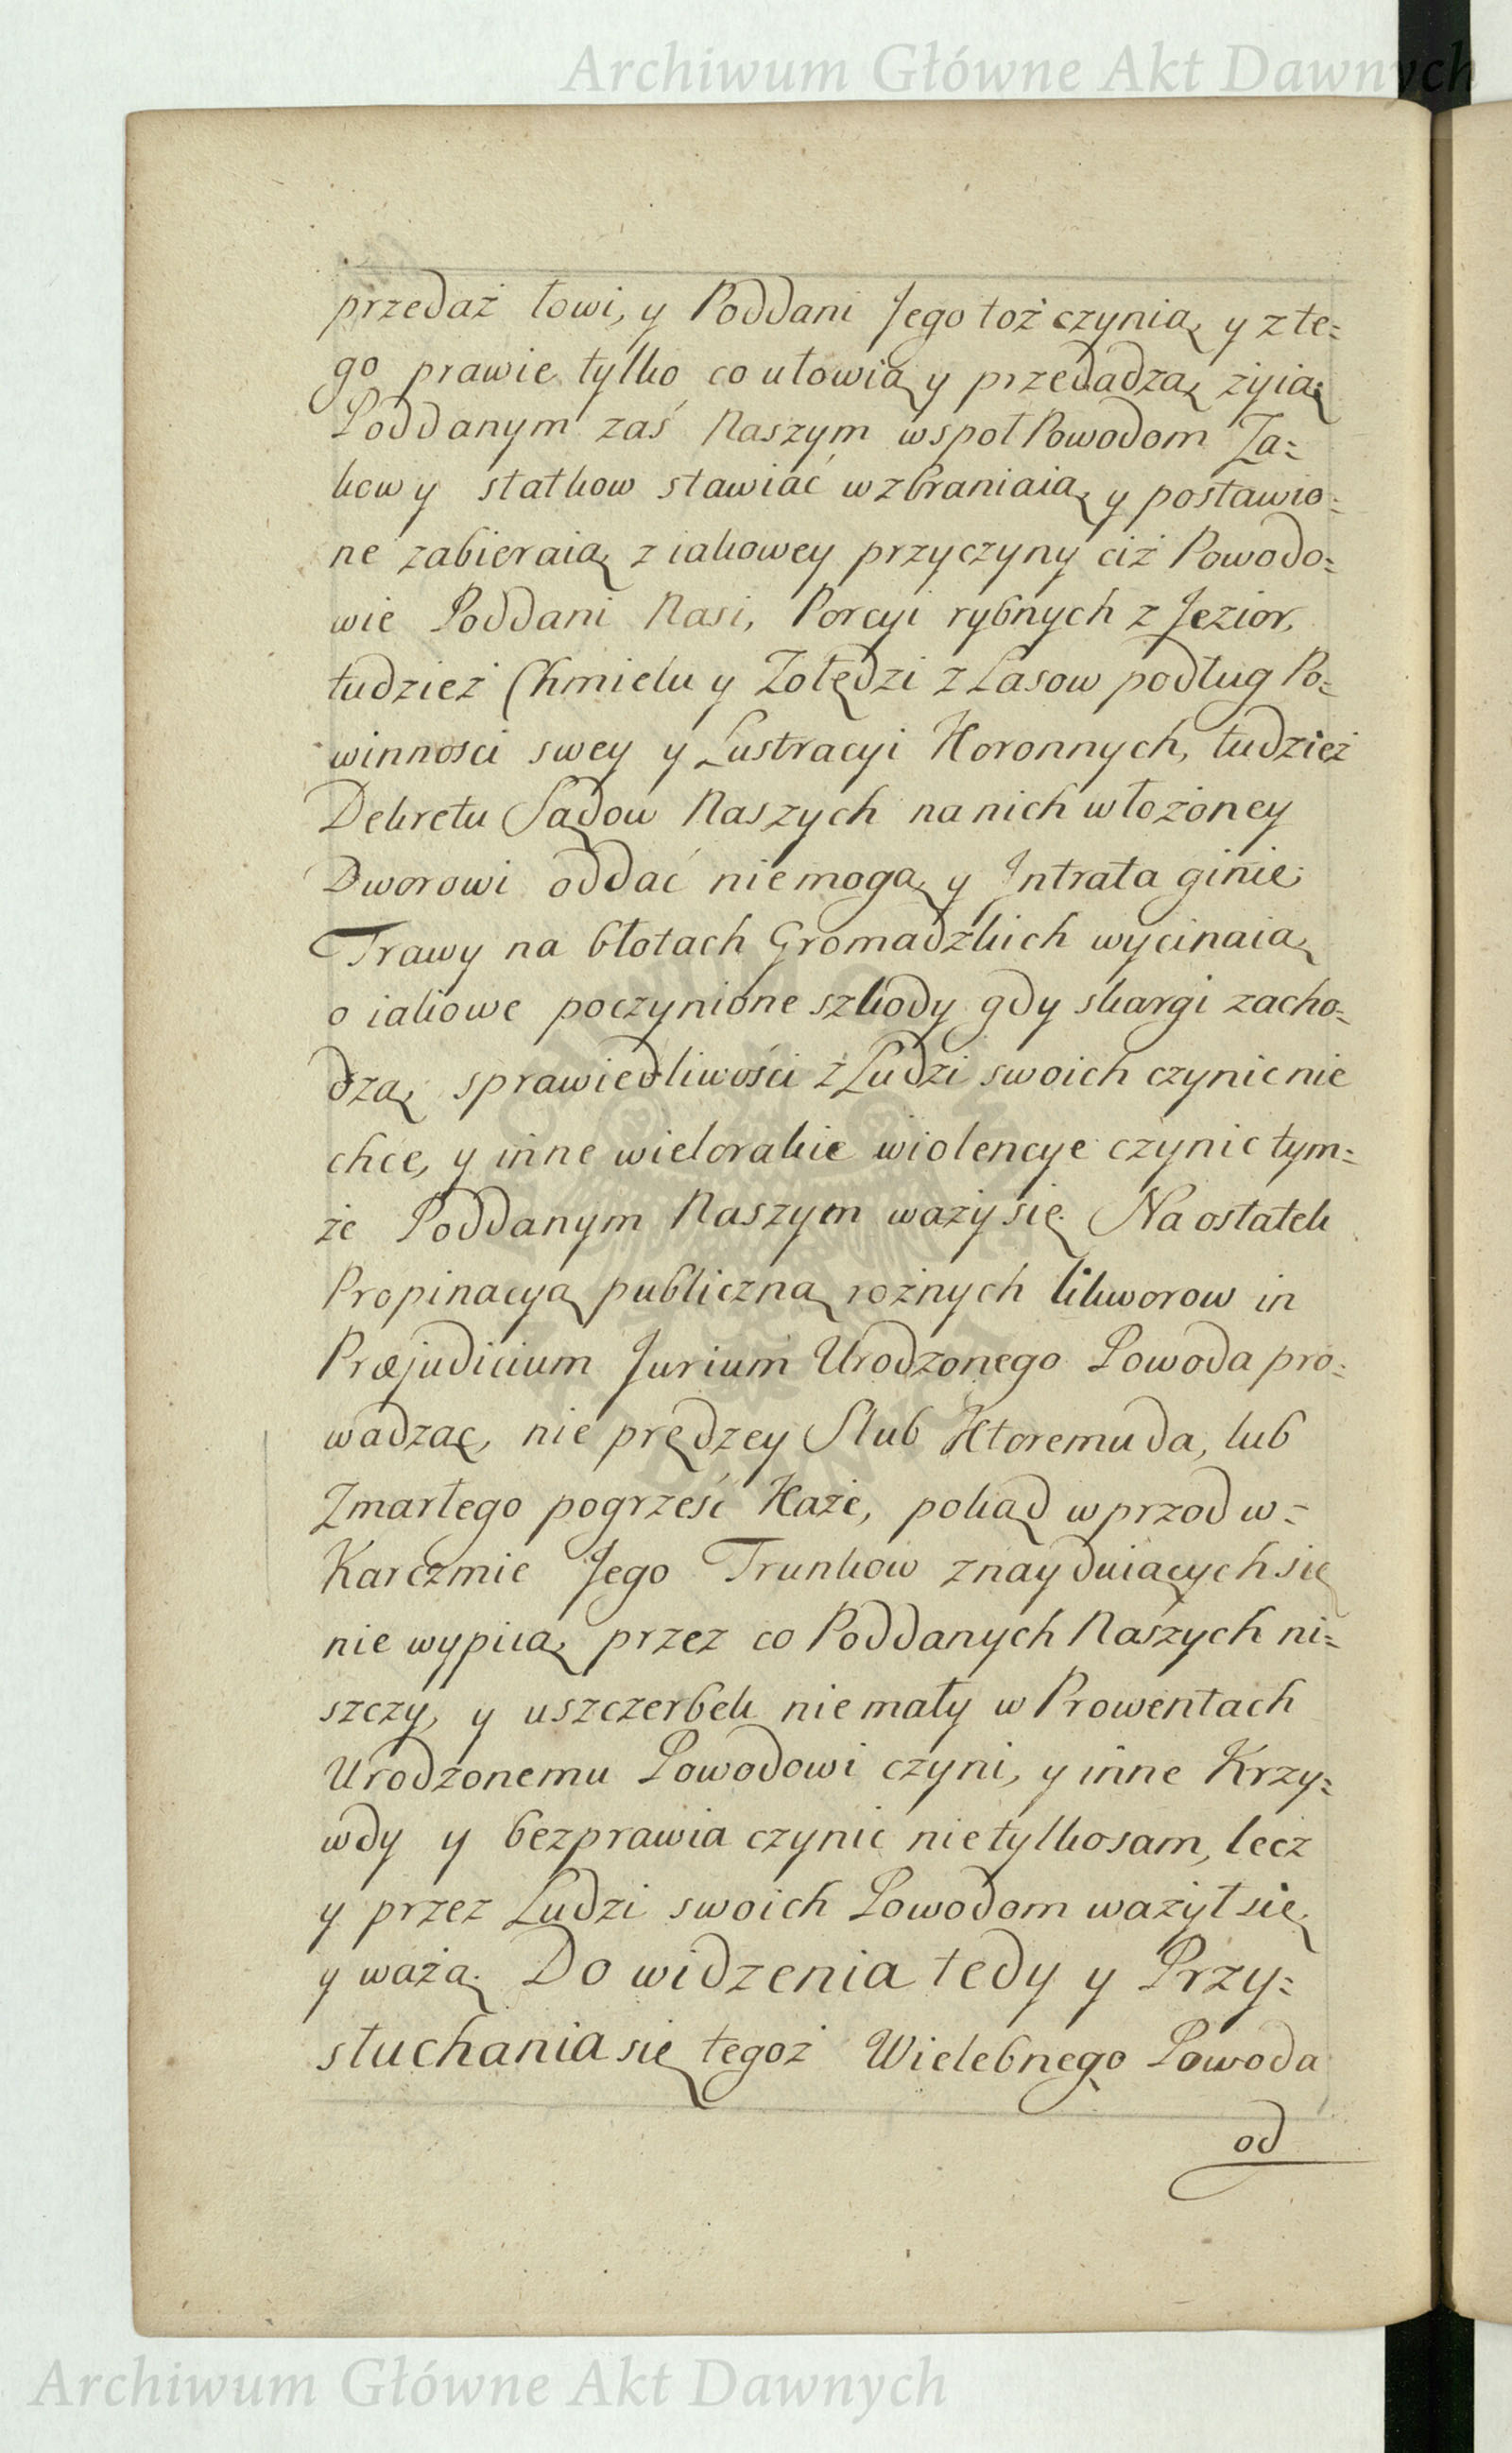 Archiwum Główne Akt Dawnych
przedaż łowi, y Poddani Jego toż czynią, y z te=
go prawie tylko co ułowią y przedadzą, żyią;
Poddanym zaś Naszym wspoł Powodom Ża=
kow y statkow stawiać wzbraniaią, y postawio=
ne zabieraią, z iakowey przyczyny ciż Powodo=
wie Poddani Nasi, Porcyi rybnych z Jezior,
tudzież Chmielu y Żołędzi z Lasow podług Po=
winności swey y Lustracyi Koronnych, tudzież
Dekretu Sądow Naszych na nich włożoney
Dworowi oddać niemogą, y Intrata ginie;
Trawy na błotach Gromadzkich wycinaią,
o iakowe poczynione szkody gdy skargi zacho=
dzą, sprawiedliwości z Ludzi swoich czynic nie
chce, y inne wielorakie wiolencye czynic tym=
że Poddanym Naszym waży się. Na ostatek
Propinacyą publiczną rożnych likworow in
Præjudicium Jurium Urodzonego Powoda pro=
wadząc, nie prędzey Slub Ktoremu da, lub
Zmarłego pogrześć Każe, pokąd wprzod w=
Karczmie Jego Trunkow znayduiących się
nie wypiią, przez co Poddanych Naszych ni=
szczy, y uszczerbek niemały w Prowentach
Urodzonemu Powodowi czyni, y inne Krzy=
wdy y bezprawia czynic nietylko sam, lecz
y przez Ludzi swoich Powodom ważył się,
y waża. Do widzenia tedy y Przy=
słuchania się tegoż Wielebnego Powoda
od
Archiwum Główne Akt Dawnych